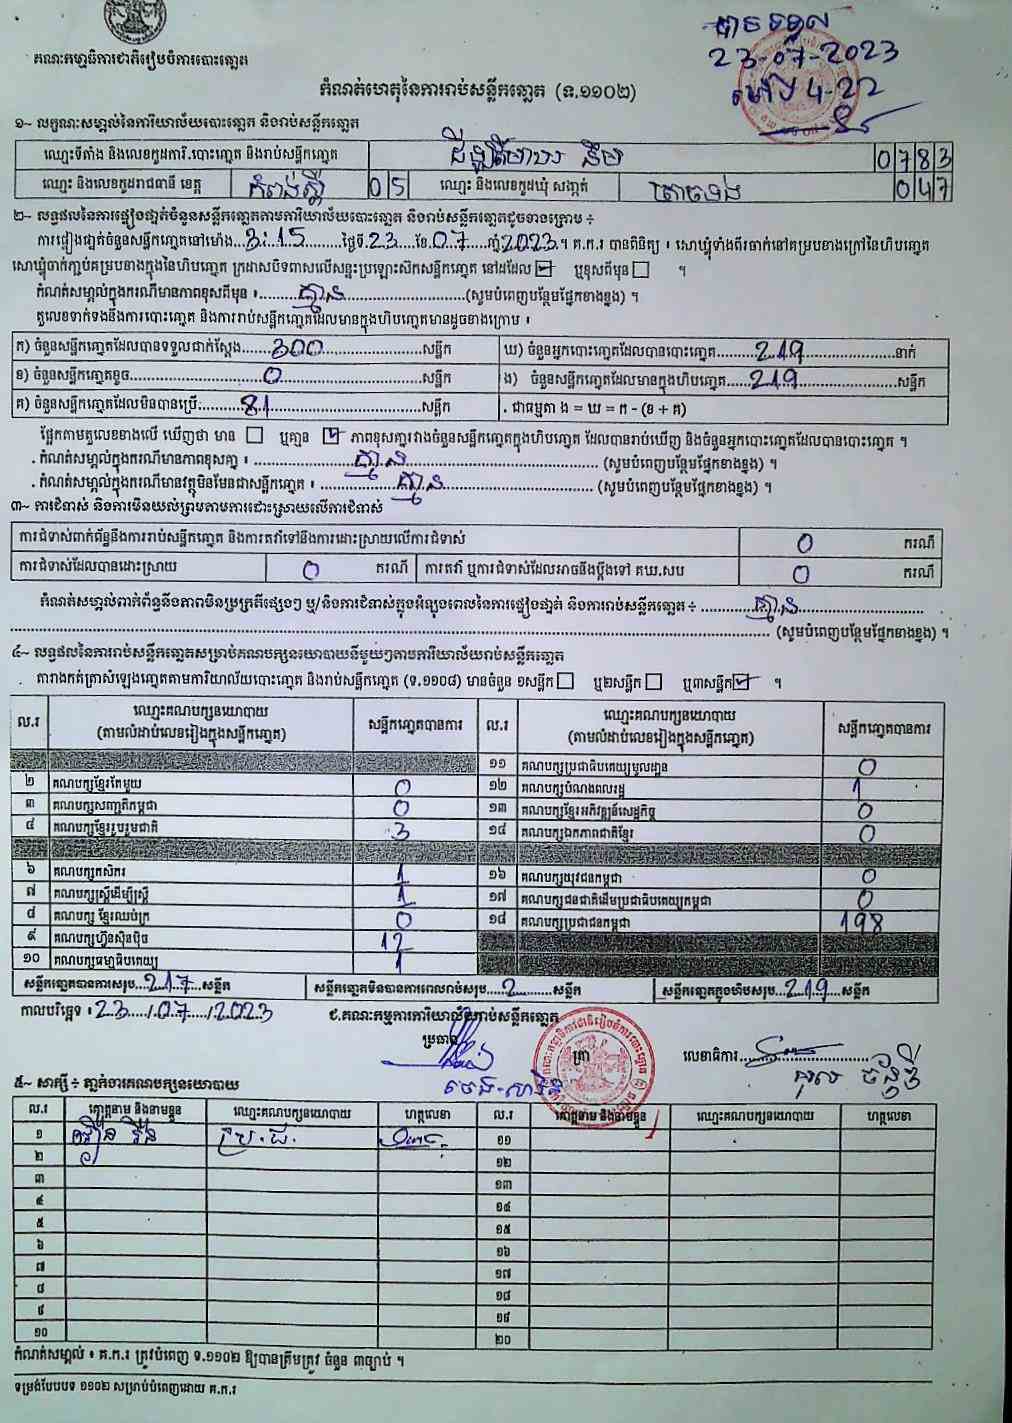 គណៈកម្មាធិការជាតិរៀបចំការបោះឆ្នោត
បានទទួល
23-07-2023
ម៉ោង 4-22
កំណត់ហេតុនៃការរាប់សន្លឹកឆ្នោត (ទ.១១០២)
១~ លក្ខណៈសម្គាល់នៃការិយាល័យបោះឆ្នោត និងរាប់សន្លឹកឆ្នោត
ឈ្មោះទីតាំង និងលេខកូដការិ.បោះឆ្នោត និងរាប់សន្លឹកឆ្នោត 0783
ឈ្មោះ និងលេខកូដរាជធានី ខេត្ត កំពង់ស្ពឺ 05 ឈ្មោះ និងលេខកូដឃុំ សង្កាត់ 047
២~ លទ្ធផលនៃការផ្ទៀងផ្ទាត់ចំនួនសន្លឹកឆ្នោតតាមការិយាល័យបោះឆ្នោត និងរាប់សន្លឹកឆ្នោតដូចខាងក្រោម ÷
ការផ្ទៀងផ្ទាត់ចំនួនសន្លឹកឆ្នោតនៅម៉ោង...3:15...ថ្ងៃទី.23...ខែ.07...ឆ្នាំ2023.។ គ.ក.រ បានពិនិត្យ ៖ សោឃ្លុំទាំងពីរចាក់នៅគម្របខាងក្រៅនៃហិបឆ្នោត
សោឃ្លុំចាក់ភ្ជាប់គម្របខាងក្នុងនៃហិបឆ្នោត ក្រដាសបិទពាសលើសន្ទះប្រឡោះស៊កសន្លឹកឆ្នោត នៅដដែល ☑ ឬខុសពីមុន ☐ ។
កំណត់សម្គាល់ក្នុងករណីមានភាពខុសពីមុន ៖ គ្មាន (សូមបំពេញបន្ថែមផ្នែកខាងខ្នង) ។
តួលេខទាក់ទងនឹងការបោះឆ្នោត និងការរាប់សន្លឹកឆ្នោតដែលមានក្នុងហិបឆ្នោតមានដូចខាងក្រោម ៖
ក) ចំនួនសន្លឹកឆ្នោតដែលបានទទួលជាក់ស្តែង 300 សន្លឹក ឃ) ចំនួនអ្នកបោះឆ្នោតដែលបានបោះឆ្នោត 219 នាក់
ខ) ចំនួនសន្លឹកឆ្នោតខូច 0 សន្លឹក ង) ចំនួនសន្លឹកឆ្នោតដែលមានក្នុងហិបឆ្នោត 219 សន្លឹក
គ) ចំនួនសន្លឹកឆ្នោតដែលមិនបានប្រើ 81 សន្លឹក . ជាធម្មតា ង = ឃ = ក - (ខ + គ)
ផ្អែកតាមតួលេខខាងលើ ឃើញថា មាន ☐ ឬគ្មាន ☑ ភាពខុសគ្នារវាងចំនួនសន្លឹកឆ្នោតក្នុងហិបឆ្នោត ដែលបានរាប់ឃើញ និងចំនួនអ្នកបោះឆ្នោតដែលបានបោះឆ្នោត ។
. កំណត់សម្គាល់ក្នុងករណីមានភាពខុសគ្នា ៖ គ្មាន (សូមបំពេញបន្ថែមផ្នែកខាងខ្នង) ។
. កំណត់សម្គាល់ក្នុងករណីមានវត្ថុមិនមែនជាសន្លឹកឆ្នោត ៖ គ្មាន (សូមបំពេញបន្ថែមផ្នែកខាងខ្នង) ។
៣~ ការជំទាស់ និងការមិនយល់ព្រមតាមការដោះស្រាយលើការជំទាស់
ការជំទាស់ពាក់ព័ន្ធនឹងការរាប់សន្លឹកឆ្នោត និងការតវ៉ាទៅនឹងការដោះស្រាយលើការជំទាស់ 0 ករណី
ការជំទាស់ដែលបានដោះស្រាយ 0 ករណី ការតវ៉ា ឬការជំទាស់ដែលអាចនឹងប្តឹងទៅ គឃ.សប 0 ករណី
កំណត់សម្គាល់ពាក់ព័ន្ធនឹងភាពមិនប្រក្រតីផ្សេងៗ ឬ/និងការជំទាស់ក្នុងអំឡុងពេលនៃការផ្ទៀងផ្ទាត់ និងការរាប់សន្លឹកឆ្នោត ÷ គ្មាន
(សូមបំពេញបន្ថែមផ្នែកខាងខ្នង) ។
៤~ លទ្ធផលនៃការរាប់សន្លឹកឆ្នោតសម្រាប់គណបក្សនយោបាយនីមួយៗតាមការិយាល័យរាប់សន្លឹកឆ្នោត
តារាងកត់ត្រាសំឡេងឆ្នោតតាមការិយាល័យបោះឆ្នោត និងរាប់សន្លឹកឆ្នោត (ទ.១១០៨) មានចំនួន ១សន្លឹក ☐ ឬ២សន្លឹក ☐ ឬ៣សន្លឹក ☑ ។
ល.រ ឈ្មោះគណបក្សនយោបាយ (តាមលំដាប់លេខរៀងក្នុងសន្លឹកឆ្នោត) សន្លឹកឆ្នោតបានការ ល.រ ឈ្មោះគណបក្សនយោបាយ (តាមលំដាប់លេខរៀងក្នុងសន្លឹកឆ្នោត) សន្លឹកឆ្នោតបានការ
១១ គណបក្សប្រជាធិបតេយ្យមូលដ្ឋាន 0
២ គណបក្សខ្មែរតែមួយ 0 ១២ គណបក្សបំណងពលរដ្ឋ 1
៣ គណបក្សសញ្ជាតិកម្ពុជា 0 ១៣ គណបក្សខ្មែរអភិវឌ្ឍន៍សេដ្ឋកិច្ច 0
៤ គណបក្សខ្មែររួបរួមជាតិ 3 ១៤ គណបក្សឯកភាពជាតិខ្មែរ 0
៦ គណបក្សកសិករ 1 ១៦ គណបក្សយុវជនកម្ពុជា 0
៧ គណបក្សស្ត្រីដើម្បីស្ត្រី 1 ១៧ គណបក្សជនជាតិដើមប្រជាធិបតេយ្យកម្ពុជា 0
៨ គណបក្ស ខ្មែរឈប់ក្រ 0 ១៨ គណបក្សប្រជាជនកម្ពុជា 198
៩ គណបក្សហ៊្វុនស៊ិនប៉ិច 12
១០ គណបក្សធម្មាធិបតេយ្យ 1
សន្លឹកឆ្នោតបានការសរុប 217 សន្លឹក សន្លឹកឆ្នោតមិនបានការពេលរាប់សរុប 2 សន្លឹក សន្លឹកឆ្នោតក្នុងហិបសរុប 219 សន្លឹក
កាលបរិច្ឆេទ ៖ 23/07/2023 ជ.គណៈកម្មការការិយាល័យរាប់សន្លឹកឆ្នោត
ប្រធាន ត្រា លេខាធិការ
៥~ សាក្សី ÷ ភ្នាក់ងារគណបក្សនយោបាយ
ល.រ គោត្តនាម និងនាមខ្លួន ឈ្មោះគណបក្សនយោបាយ ហត្ថលេខា ល.រ គោត្តនាម និងនាមខ្លួន ឈ្មោះគណបក្សនយោបាយ ហត្ថលេខា
១ ប្រ.ជ. ១១
២ ១២
៣ ១៣
៤ ១៤
៥ ១៥
៦ ១៦
៧ ១៧
៨ ១៨
៩ ១៩
១០ ២០
កំណត់សម្គាល់ ៖ គ.ក.រ ត្រូវបំពេញ ទ.១១០២ ឱ្យបានត្រឹមត្រូវ ចំនួន ៣ច្បាប់ ។
ទម្រង់បែបបទ ១១០២ សម្រាប់បំពេញដោយ គ.ក.រ